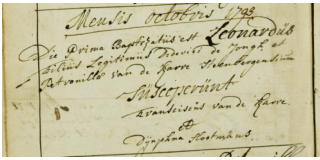 Mensis octobris 1793
Die Prima Baptizatus est Leonardus
filius Legitimus Henrici de Jongh et
Petronilla van de Karre
Susceperunt
Franciscus van de Karre
et
Dympna